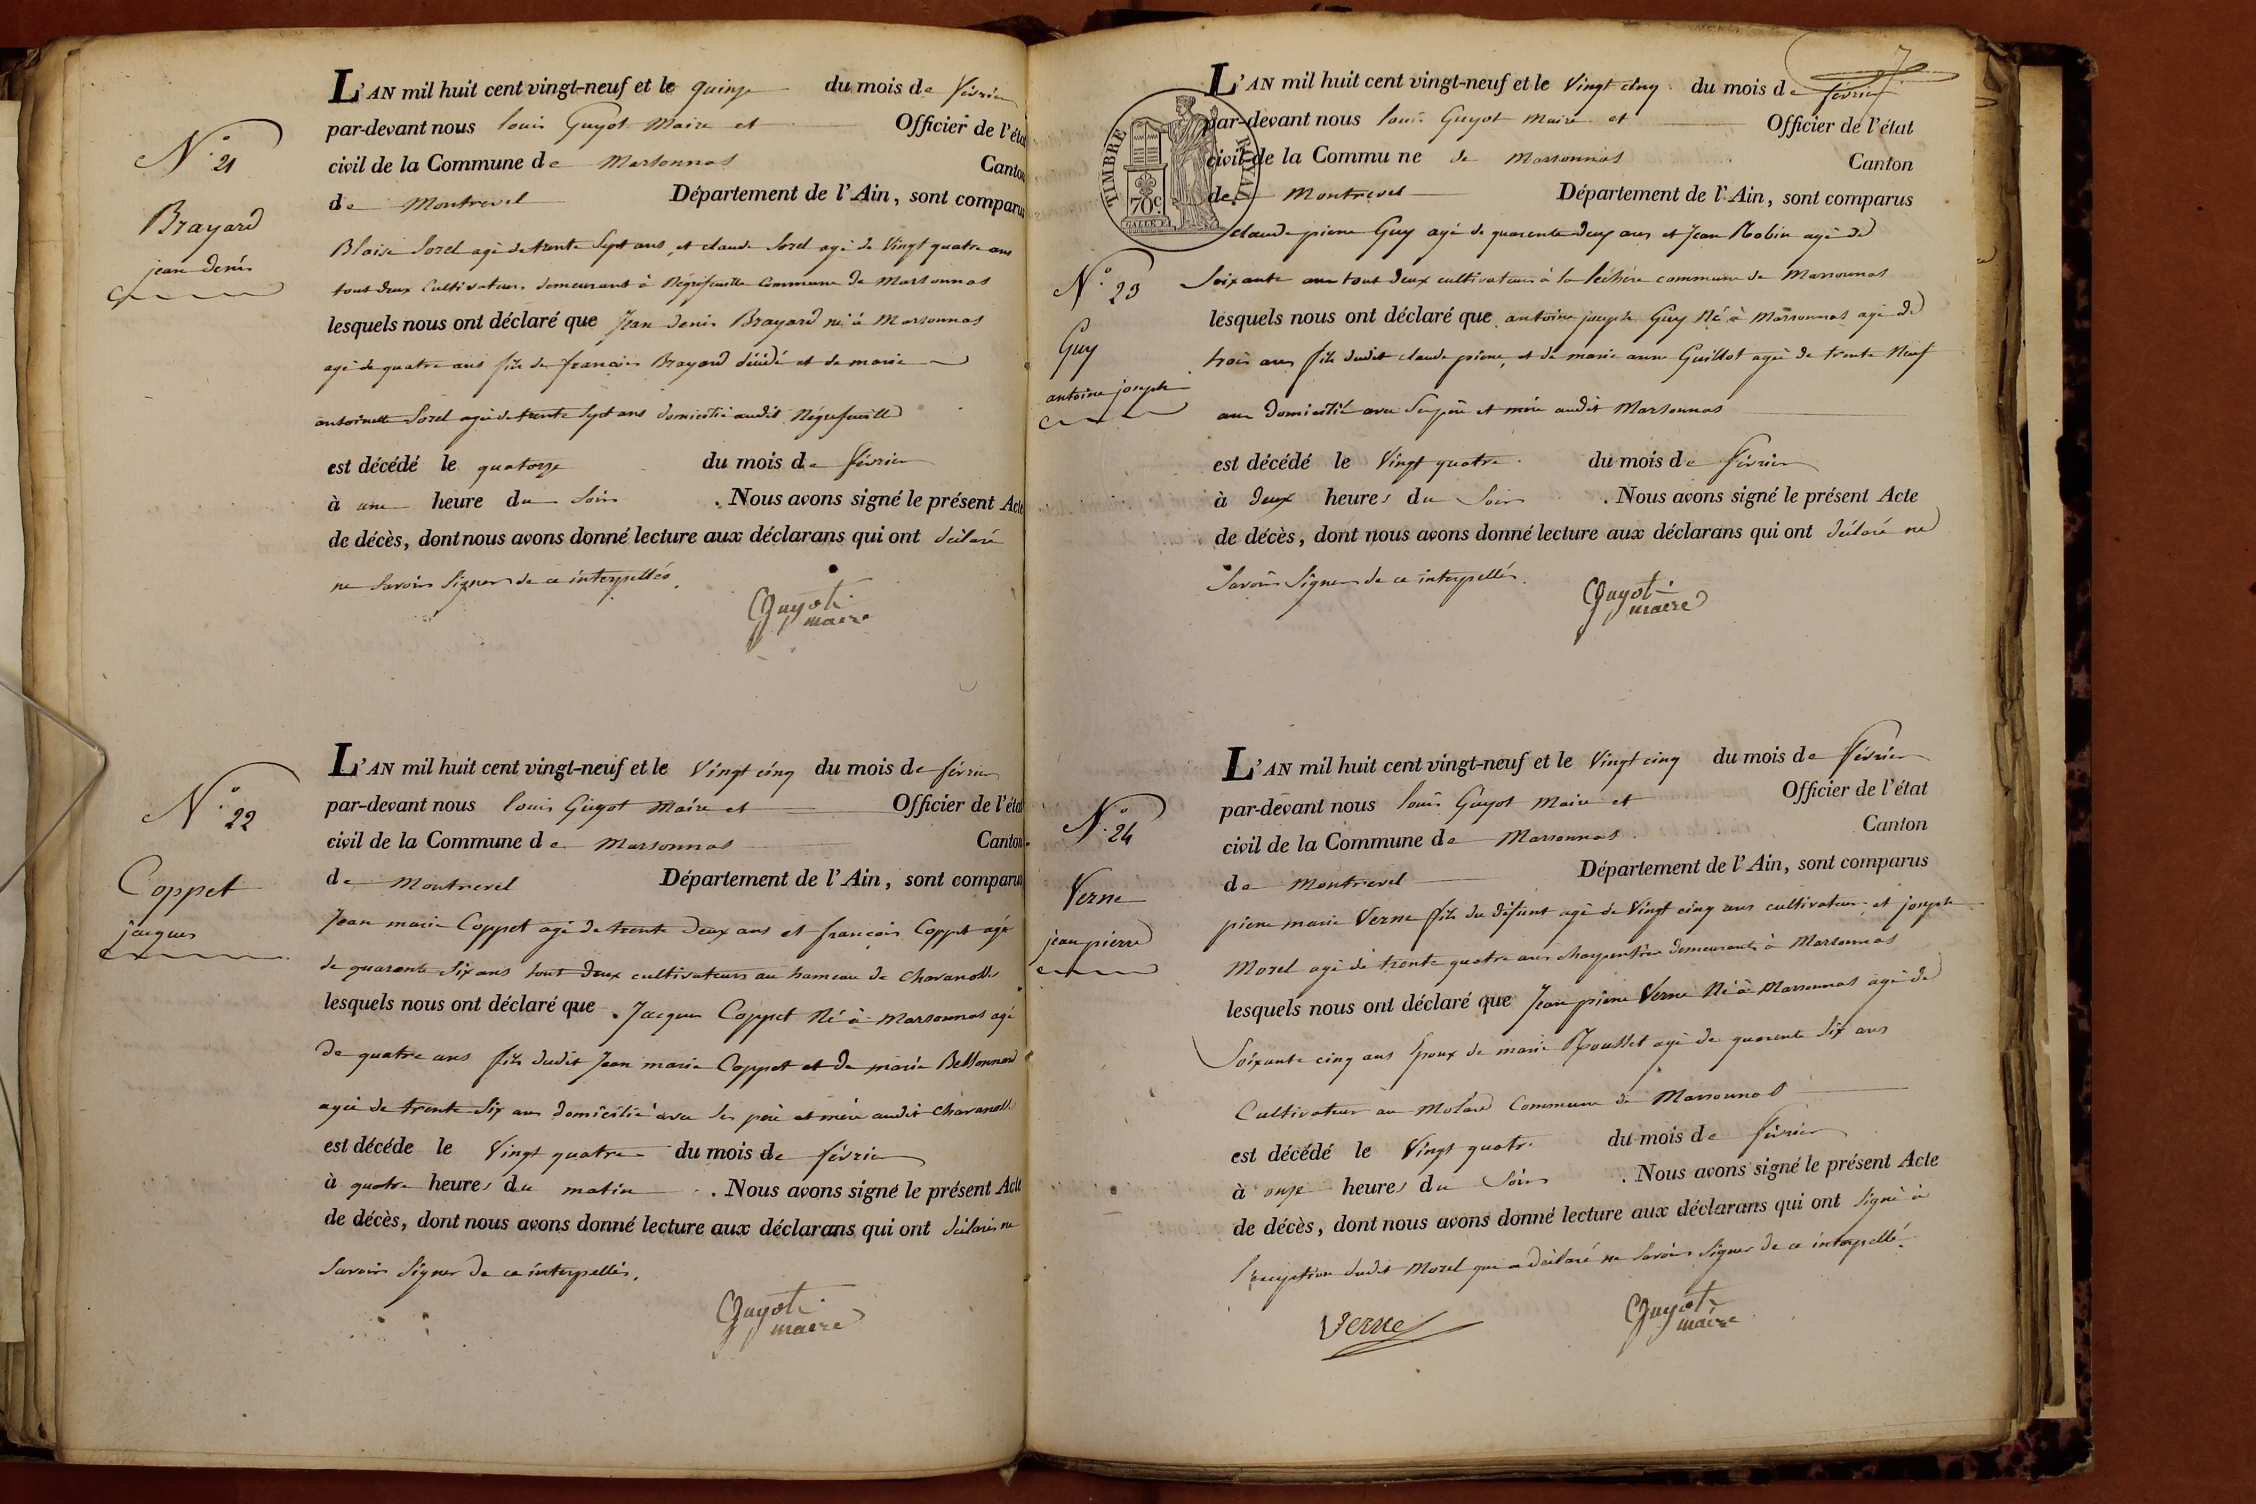 N.° 21
Brayard
jean denis
L'AN mil huit cent vingt-neuf et le quinze du mois de février
par-devant nous louis Guyot Maire et Officier de l'état
civil de la Commune de Marsonnas Canton
de Montrevel Département de l'Ain, sont comparus
Blaise Sorel agé de trente Sept ans, et claude Sorel agé de Vingt quatre ans
tout deux Cultivateurs demeurant à Négrefeuille Commune de Marsonnas
lesquels nous ont déclaré que Jean denis Brayard né à Marsonnas
agé de quatre ans fils de françois Brayard décédé et de marie
antoinette Sorel agée de trente Sept ans domicilié audit Négrefeuille
est décédé le quatorze du mois de février
à une heure du Soir . Nous avons signé le présent Acte
de décès, dont nous avons donné lecture aux déclarans qui ont déclaré
ne Savoir Signer de ce interpellés.
Guyot
maire
N.° 22
Coppet
jacques
L'AN mil huit cent vingt-neuf et le Vingt cinq du mois de février
par-devant nous louis Guyot Maire et Officier de l'état
civil de la Commune de Marsonnas Canton
de Montrevel Département de l'Ain, sont comparus
Jean marie Coppet agé de trente Deux ans et françois Coppet agé
de quarante Six ans tout deux cultivateurs au hameau de Chavanolles
lesquels nous ont déclaré que Jacques Coppet Né à Marsonnas agé
de quatre ans fils dudit Jean marie Coppet et de marie Bellonnard
agée de trente Six ans domicilié avec Ses père et mère audit Chavanolles
est décéde le Vingt quatre du mois de février
à quatre heures du matin . Nous avons signé le présent Acte
de décès, dont nous avons donné lecture aux déclarans qui ont déclarés ne
Savoir Signer de ce interpellés.
Guyot
maire
7
TIMBRE ROYAL
70c.
N.° 23
Guy
antoine joseph
L'AN mil huit cent vingt-neuf et le Vingt cinq du mois de février
par-devant nous louis Guyot maire et Officier de l'état
civil de la Commu ne de Marsonnas Canton
de Montrevel Département de l'Ain, sont comparus
claude pierre Guy agé de quarente deux ans et Jean Robin agé de
Soixante ans tout deux cultivateurs à la Léchère commune de Marsonnas
lesquels nous ont déclaré que antoine joseph Guy Né à Marsonnas agé de
trois ans fils dudit claude pierre, et de marie anne Guillot agée de trente Neuf
ans Domicilié avec Ses père et mère audit Marsonnas
est décédé le Vingt quatre du mois de février
à deux heures du Soir . Nous avons signé le présent Acte
de décès, dont nous avons donné lecture aux déclarans qui ont déclaré ne
Savoir Signer de ce interpellés.
Guyot
maire
N.° 24
Verne
jean pierre
L'AN mil huit cent vingt-neuf et le Vingt cinq du mois de février
par-devant nous louis Guyot Maire et Officier de l'état
civil de la Commune de Marsonnas Canton
de Montrevel Département de l'Ain, sont comparus
pierre marie Verne fils du défunt agé de Vingt cinq ans cultivateur et joseph
Morel agé de trente quatre ans charpentier demeurants à Marsonnas
lesquels nous ont déclaré que Jean pierre Verne Né à Marsonnas agé de
Soixante cinq ans Epoux de marie Rousset agé de quarente Six ans
Cultivateur au Molard Commune de Marsonnas
est décédé le Vingt quatre du mois de février
à onze heures du Soir . Nous avons signé le présent Acte
de décès, dont nous avons donné lecture aux déclarans qui ont Signé à
l'exception dudit Morel qui a déclaré ne Savoir Signer de ce interpellé.
Verne
Guyot
maire